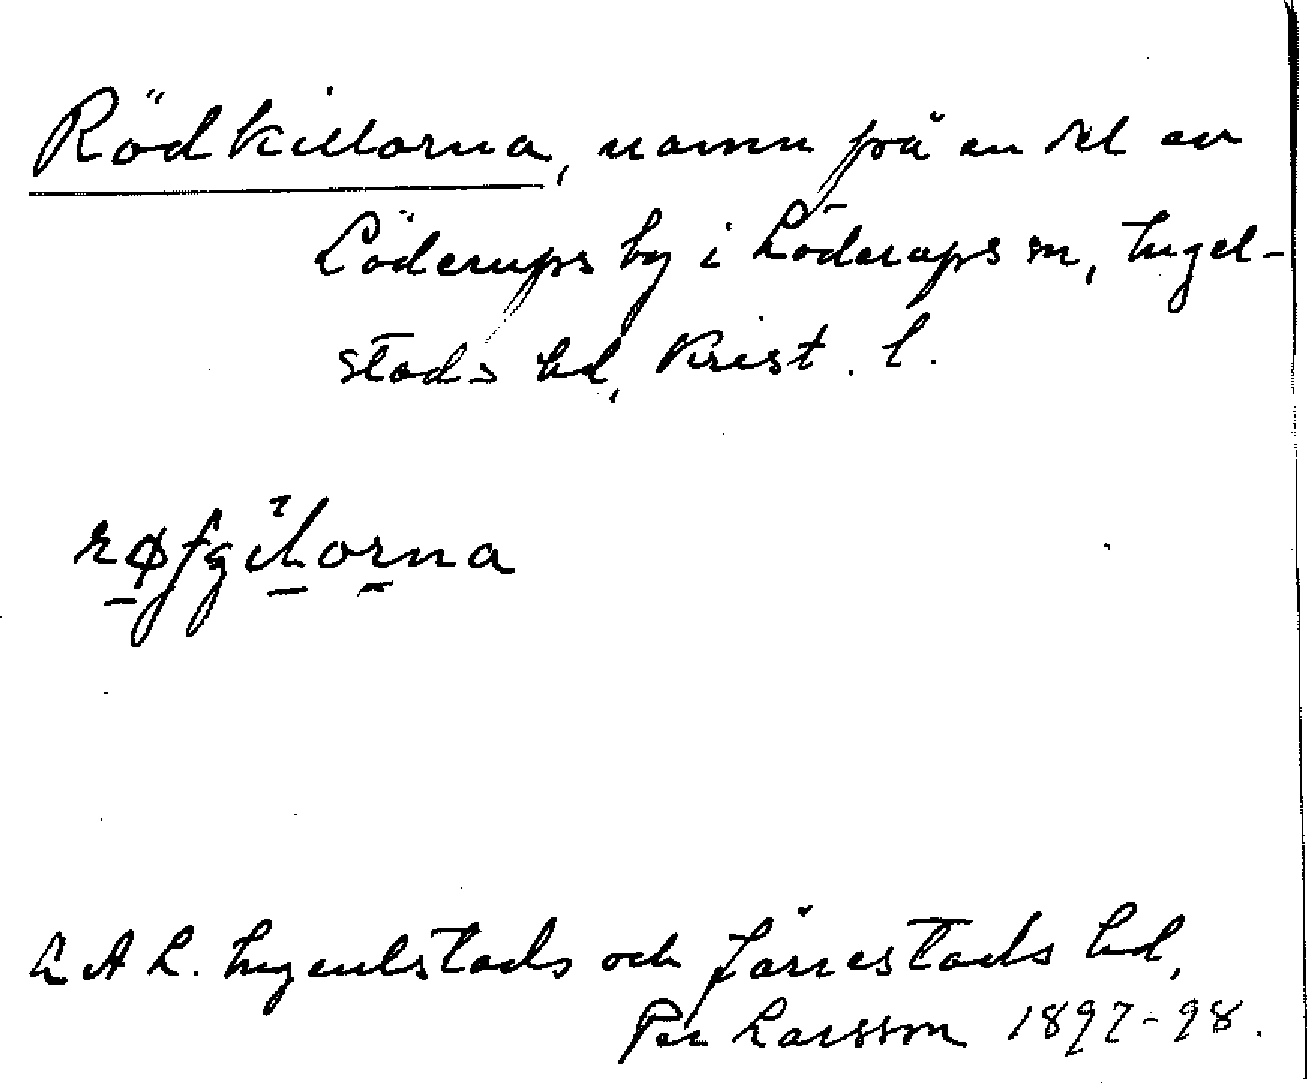 Rödkillorna, namn på en del av
Löderups by i Löderups sn, Ingel-
stads hd, Krist. l.
røfgilorna
L A L. Ingelstads och Järrestads hd,
Per Larsson 1897-98.